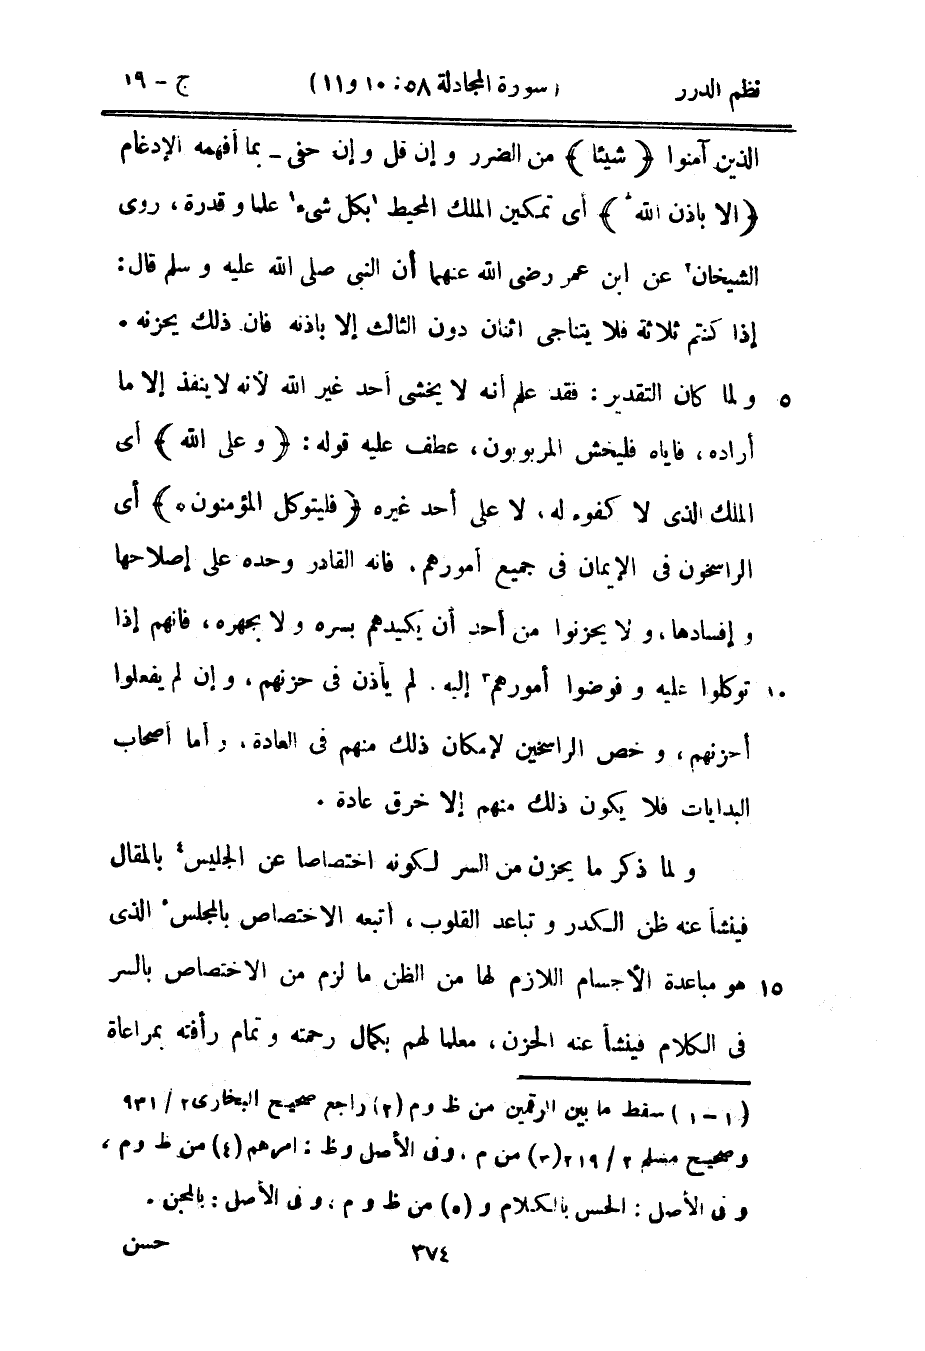 نظم الدرر (سورة المجادلة ٥٨: ١٠ و١١) ج - ١٩
الذين آمنوا ﴿ شيئا ﴾ من الضرر و إن قل و إن خفى - بما أفهمه الإدغام
﴿ الا باذن الله ؕ ﴾ أى تمكين الملك المحيط ١بكل شىء١ علما و قدرة، روى
الشيخان٢ عن ابن عمر رضى الله عنهما أن النبى صلى الله عليه و سلم قال:
إذا كنتم ثلاثة فلا يتناجى اثنان دون الثالث إلا باذنه فان ذلك يحزنه .
٥ و لما كان التقدير: فقد علم أنه لا يخشى أحد غير الله لأنه لا ينفذ إلا ما
أراده، فاياه فليخش المربوبون، عطف عليه قوله: ﴿ و على الله ﴾ أى
الملك الذى لا كفوء له، لا على أحد غيره ﴿ فليتوكل المؤمنون ه ﴾ أى
الراسخون فى الإيمان فى جميع أمورهم . فانه القادر وحده على إصلاحها
و إفسادها، و لا يحزنوا من أحد أن يكيدهم بسره و لا بجهره، فانهم إذا
١٠ توكلوا عليه و فوضوا أمورهم٣ إليه . لم يأذن فى حزنهم، و إن لم يفعلوا
أحزنهم، و خص الراسخين لإمكان ذلك منهم فى العادة، و أما أصحاب
البدايات فلا يكون ذلك منهم إلا خرق عادة .
و لما ذكر ما يحزن من السر لكونه اختصاصا عن الجليس٤ بالمقال
فينشأ عنه ظن الكدر و تباعد القلوب، أتبعه الاختصاص بالمجلس٥ الذى
١٥ هو مباعدة الأجسام اللازم لها من الظن ما لزم من الاختصاص بالسر
فى الكلام فينشأ عنه الحزن، معلما لهم بكمال رحمته و تمام رأفته بمراعاة
(١-١) سقط ما بين الرقمين من ظ و م (٢) راجع صحيح البخارى ٢ / ٩٣١
و صحيح مسلم ٢ / ٢١٩ (٣) من م ، و فى الأصل و ظ : امرهم (٤) من ظ و م ،
و فى الأصل : الحس بالكلام و (٥) من ظ و م ، و فى الأصل : بالمجن .
٣٧٤ حسن